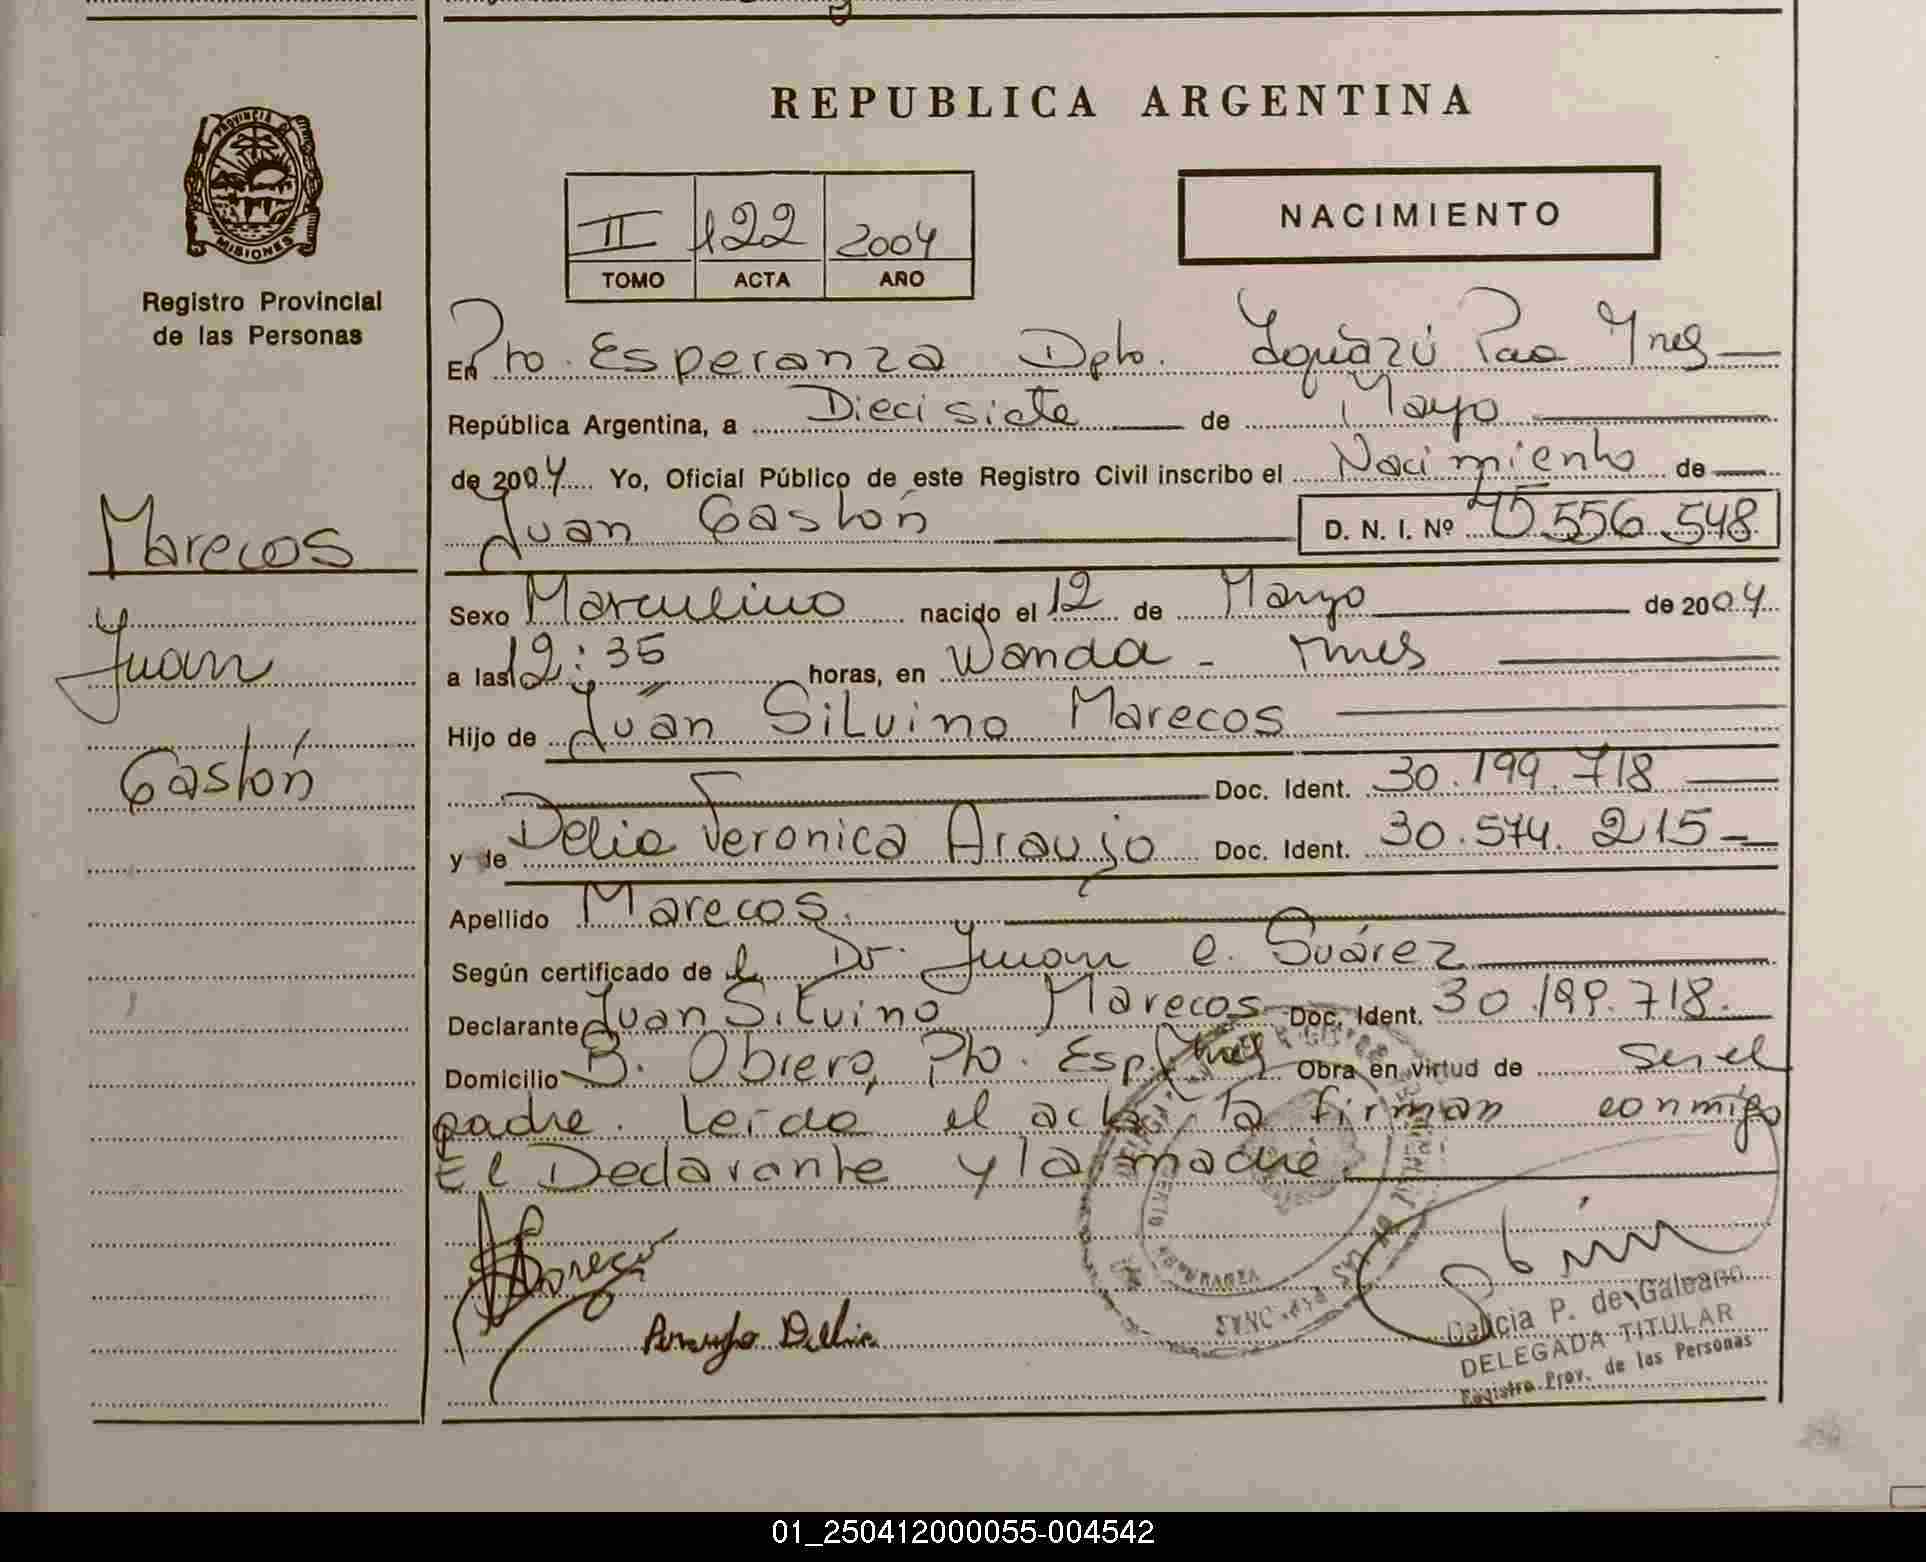 REPUBLICA ARGENTINA
PROVINCIA DE
MISIONES
Registro Provincial
de las Personas
II 122 2004
TOMO ACTA AÑO
NACIMIENTO
En Pto. Esperanza Dpto. Iguazú Pcia Mnes
República Argentina, a Diecisiete de Mayo
de 2004 Yo, Oficial Público de este Registro Civil inscribo el Nacimiento de
Juan Gastón D. N. I. Nº 45.556.548
Marecos
Juan
Gastón
Sexo Masculino nacido el 12 de Marzo de 2004
a las 12:35 horas, en Wanda - Mnes
Hijo de Juan Silvino Marecos
Doc. Ident. 30.199.718
y de Delia Veronica Araujo Doc. Ident. 30.574.215
Apellido Marecos.
Según certificado de el Dr. Juan C. Suárez
Declarante Juan Silvino Marecos Doc. Ident. 30.199.718.
Domicilio B. Obrero, Pto. Esp. Mnes Obra en virtud de ser el
padre. Leída el acta la firman conmigo
El Declarante y la madre.
Araujo Delia
P. de Galeano
DELEGADA TITULAR
Registro Prov. de las Personas
01_250412000055-004542